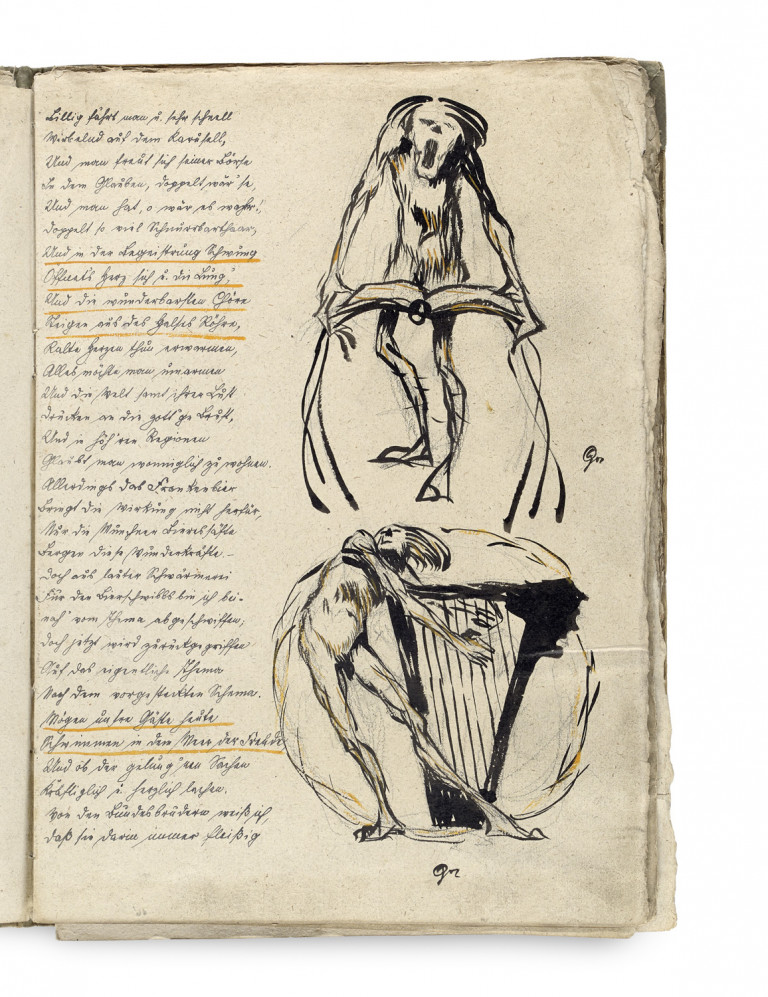 Billig fährt man u. sehr schnell
Wirbelnd auf dem Karusell,
Und man freut sich seiner Börse
In dem Glauben, doppelt wär' se,
Und man hat, o wär es wahr!,
Doppelt so viel Schnurrbarthaar,
Und in der Begeistrung Schwung
Öffnet's Herz sich u. die Lung',
Und die wunderbarsten Chöre
Steigen aus des Halses Röhre,
Kalte Herzen thun erwarmen,
Alles möchte man umarmen
Und die Welt samt ihrer Lust
Drücken an die gott'ge Brust,
Und in höh'ren Regionen
Glaubt man wonniglich zu wohnen.
Allerdings das Frankenbier
Bringt die Wirkung nicht herfür,
Nur die Münchner Bieressäfte
Bergen diese Wunderkräfte. –
Doch aus lauter Schwärmerei
Für den Bierschwips bin ich bei-
nah' vom Thema abgeschwiffen;
Doch jetzt wird zurückgegriffen
Auf das eigentliche Thema
Nach dem vorgesteckten Schema.
Mögen unsre Gäste heute
Schwimmen in dem Meer der Freude
Und ob der gelung'nen Sachen
Kräftiglich u. herzlich lachen.
Von den Bundesbrüdern weiß ich,
Daß sie darin immer fleißig